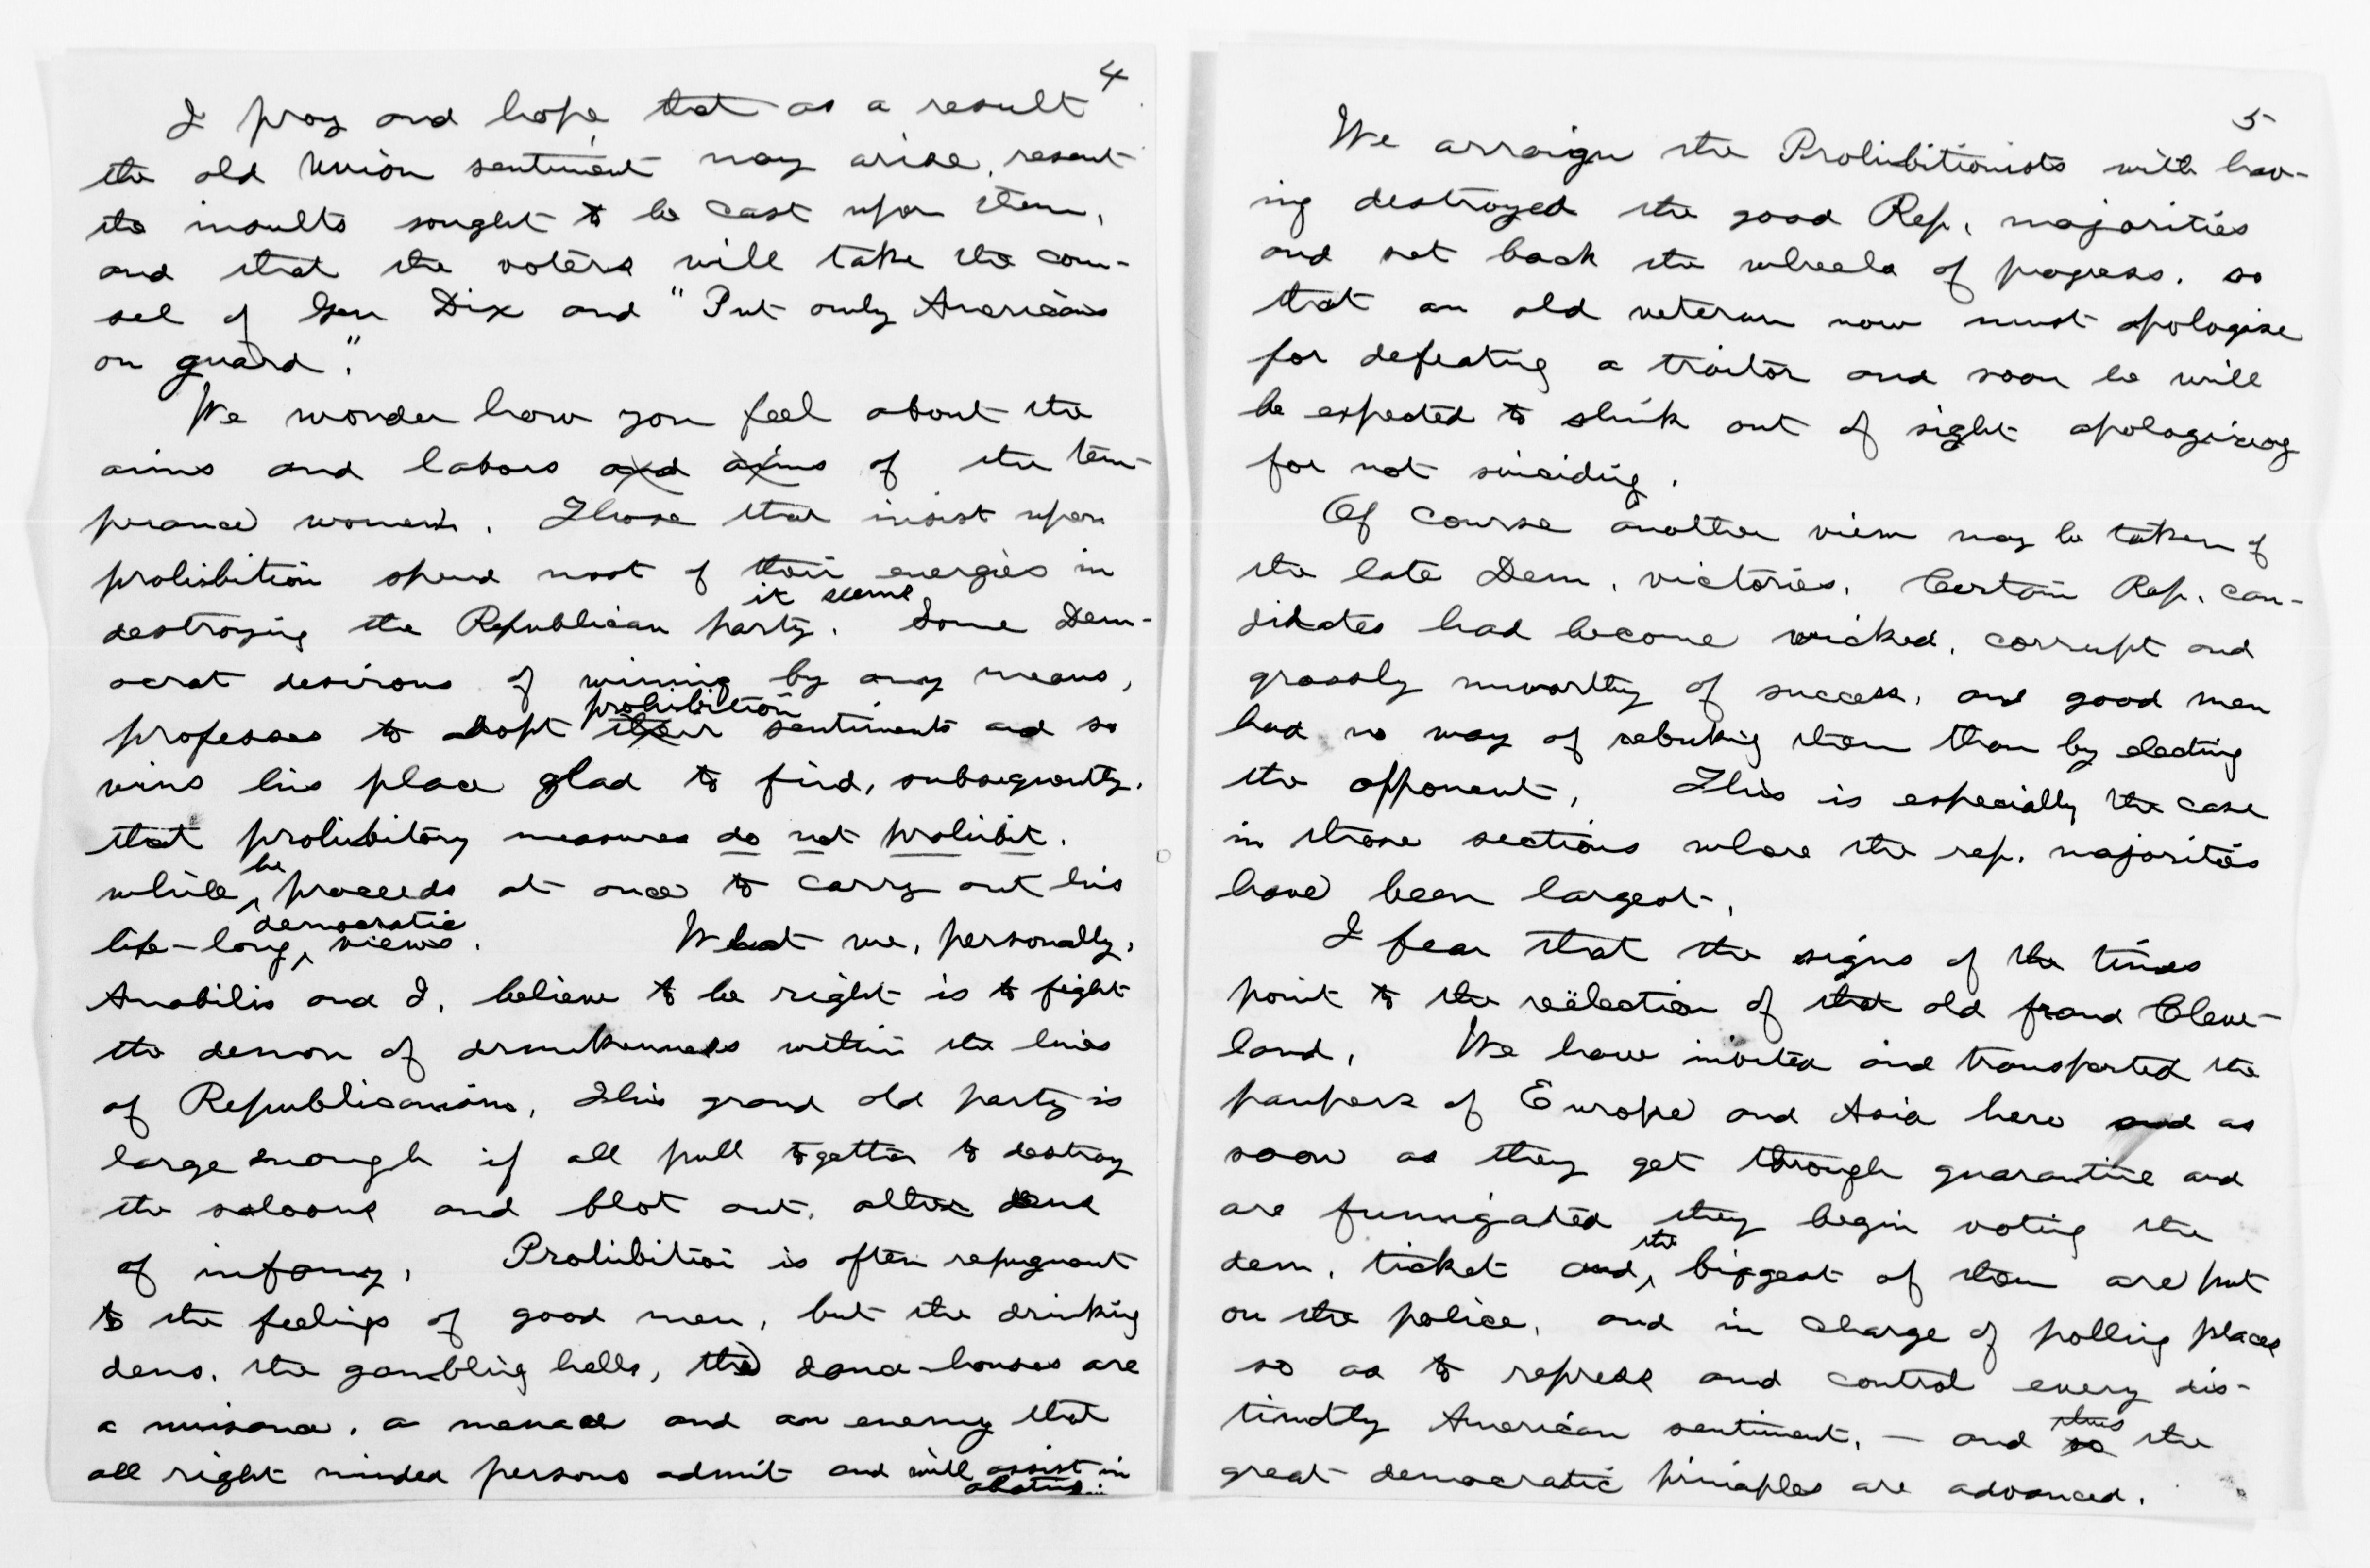 4
I pray and hope that as a result
the old Union sentiment may arise, resent
the insults sought to be cast upon them,
and that the voters will take the coun-
sel of Gen Dix and "Put only Americans
on guard."
We wonder how you feel about the
aims and labors and aims of the tem-
perance women. Those that insist upon
prohibition spend most of their energies in
it seems
destroying the Republican party. Some Dem-
ocrat desirous of winning by any means,
prohibition
professes to adopt their sentiments and so
wins his place glad to find, subsequently,
that prohibitory measures do not prohibit.
he
while proceeds at once to carry out his
democratic
life-long views. What we, personally,
Amabilis and I, believe to be right is to fight
the demon of drunkenness within the lines
of Republicanism. This grand old party is
large enough if all pull together to destroy
the saloons and blot out, other dens
of infamy. Prohibition is often repugnant
to the feelings of good men, but the drinking
dens, the gambling hells, the dance-houses are
a nuisance, a menace and an enemy that
all right minded persons admit and will assist in
abating.
5
We arraign the Prohibitionists with hav-
ing destroyed the good Rep. majorities
and set back the wheels of progress, so
that an old veteran now must apologise
for defeating a traitor and soon he will
be expected to slink out of sight apologizing
for not suiciding.
Of course another view may be taken of
the late Dem. victories. Certain Rep. can-
didates had become wicked, corrupt and
grossly unworthy of success, and good men
had no way of rebuking them than by electing
the opponent. This is especially the case
in those sections where the rep. majorities
have been largest.
I fear that the signs of the times
point to the reëlection of that old fraud Cleve-
land. We have invited and transported the
paupers of Europe and Asia here and as
soon as they get through quarantine and
are fumigated they begin voting the
the
dem. ticket and biggest of them are put
on the police, and in charge of polling places
so as to repress and control every dis-
tinctly American sentiment, — and
thus
so the
great democratic principles are advanced.